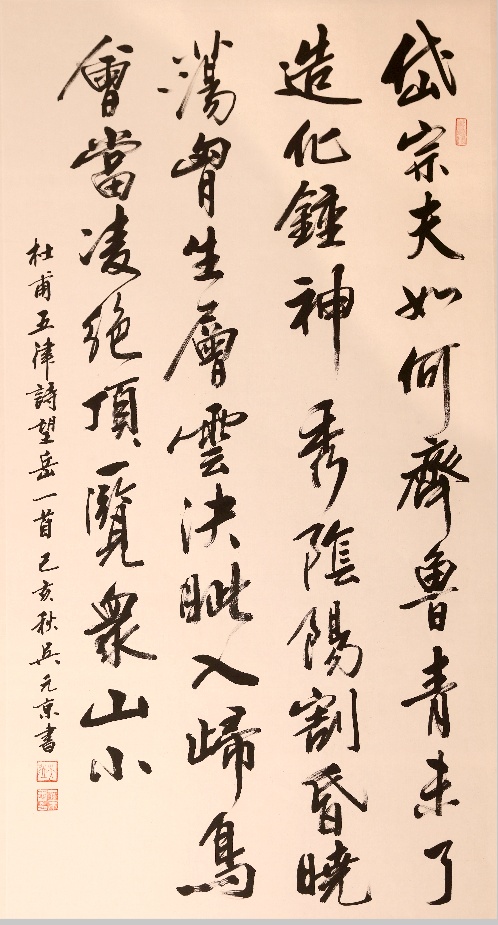 岱宗夫如何齊魯青未了
造化鍾神秀陰陽割昏曉
蕩胷生層雲決眦入歸鳥
會當凌絕頂一覽衆山小
杜甫五津詩望岳一首己亥秋吳元京書